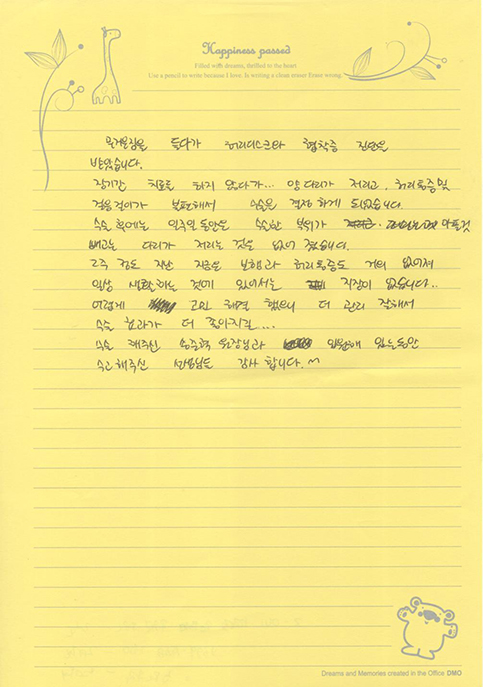 Happiness passed
Filled with dreams, thrilled to the heart
Use a pencil to write because I love. Is writing a clean eraser Eraser wrong.
무거운짐을 들다가 허리디스크와 협착증 진단을
받았습니다.
장기간 치료를 하지 않다가... 양 다리가 저리고, 허리통증 및
걸음걸이가 불편해서 수술을 결정하게 되었습니다.
수술 후에는 일주일 동안은 수술한 부위가 아픈것
빼고는 다리가 저리는 것은 없어 졌습니다.
2주 정도 지난 지금은 보행과 허리통증도 거의 없어져
일상 생활하는 것에 있어서는 지장이 없습니다..
어렵게 고민 해결 했으니 더 관리 잘해서
수술 효과가 더 좋아지길...
수술 해주신 원장님과 입원해 있는동안
수고해주신 선생님들 감사 합니다.♡
Dreams and Memories created in the Office DMO